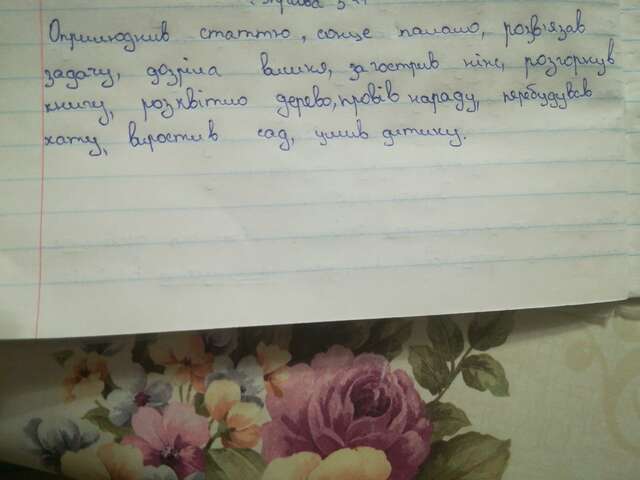 Вправа 3
Оприлюднив статтю, сонце палало, розв'язав
задачу, дозріла вишня, загострив ніж, розгорнув
книгу, розквітло дерево, провів нараду, перебудував
хату, виростив сад, умив дитину.